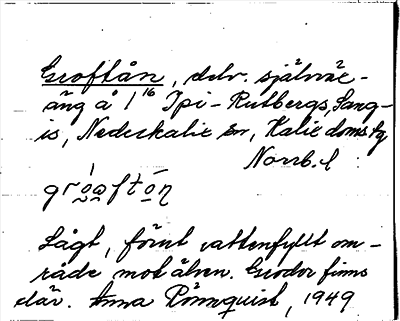 Groftån, delv. självrä-
äng å 1¹⁶ Ipi-Rutbergs, Sang-
is, Nederkalix sn, Kalix doms. tg
Norrb. l
gro̯a̯ftōn
Lågt, förut vattenfyllt om-
råde mot älven. Grodor finns
där. Anna Rönnquist, 1949